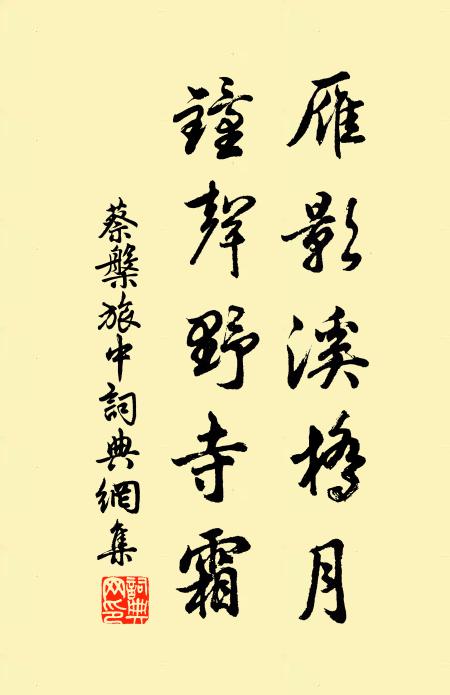 雁影溪橋月
鐘聲野寺霜
蔡槃旅中詞典網集
詞典网印